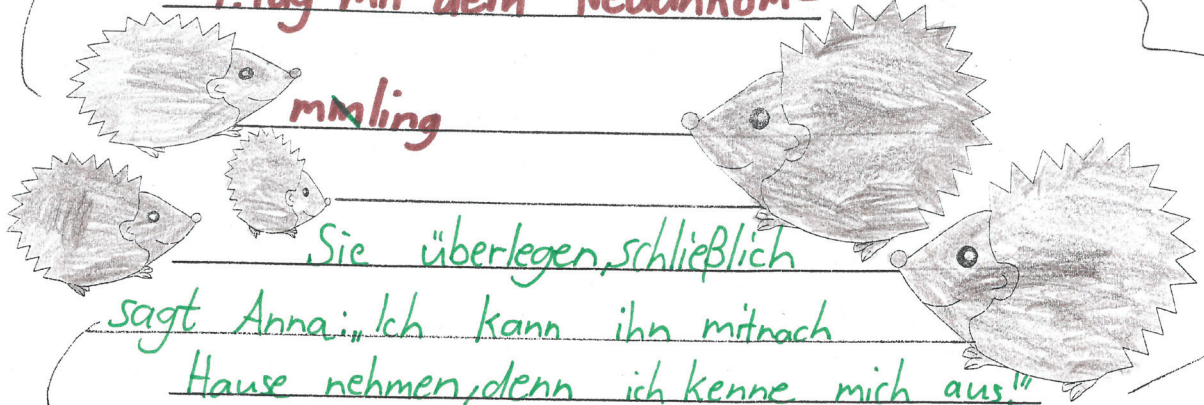 1. Tag mit dem Neuankom-
mling
Sie überlegen, schließlich
sagt Anna: „Ich kann ihn mitnach
Hause nehmen, denn ich kenne mich aus!"